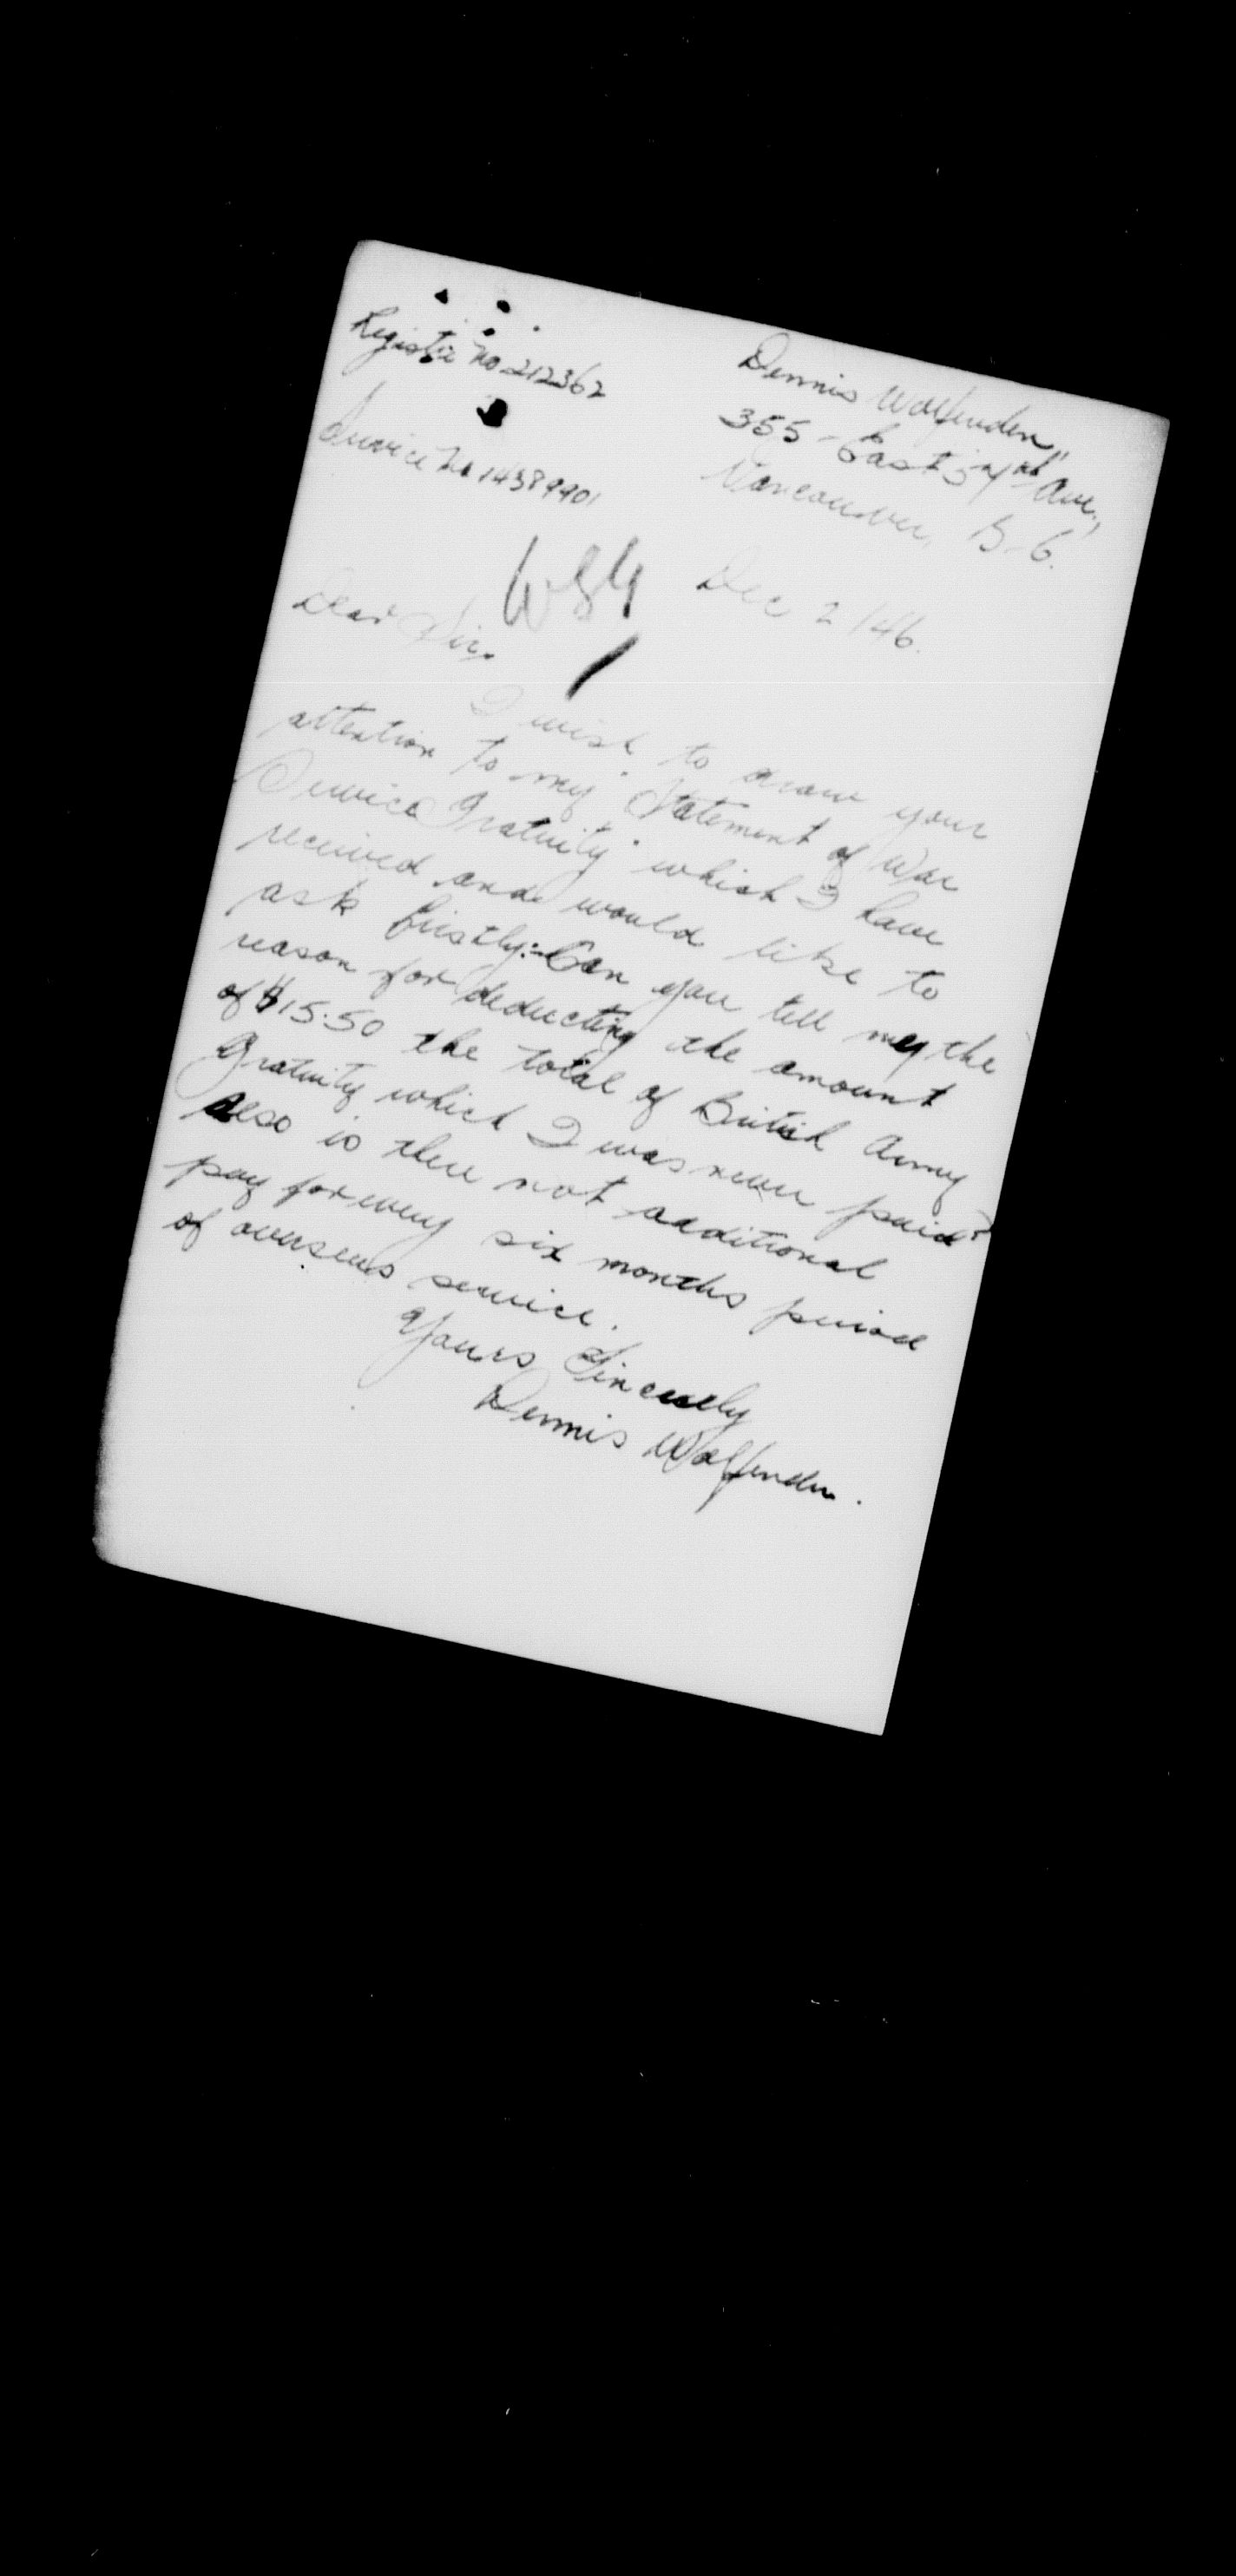 Register No 212362
Dennis Wolfenden,
355 - East Ave.,
Service No 14389901
Vancouver, B-C.
WSG
Dec 2/46.
Dear Sir,
I wish to draw your
attention to my "Statement of War
Service Gratuity" which I have
received and would like to
ask firstly:- Can you tell me the
reason for deducting the amount
of $15.50 the total of British Army
Gratuity which I was never paid?
Also is there not additional
pay for every six months period
of overseas service.
Yours Sincerely
Dennis Wolfenden.